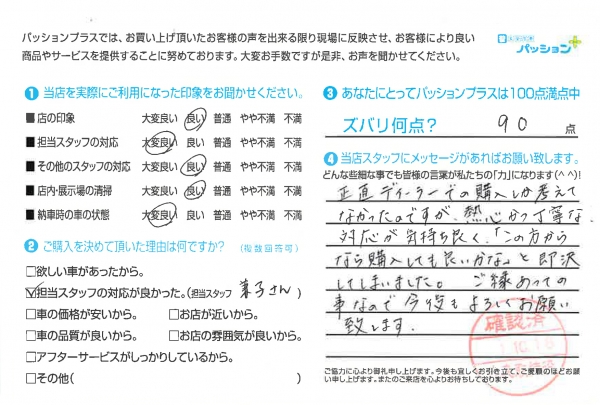 パッションプラスでは、お買い上げ頂いたお客様の声を出来る限り現場に反映させ、お客様により良い
商品やサービスを提供することに努めております。大変お手数ですが是非、お声を聞かせてください。
パッション
1 当店を実際にご利用になった印象をお聞かせください。
■店の印象 大変良い 良い 普通 やや不満 不満
■担当スタッフの対応 大変良い 良い 普通 やや不満 不満
■その他のスタッフの対応 大変良い 良い 普通 やや不満 不満
■店内・展示場の清掃 大変良い 良い 普通 やや不満 不満
■納車時の車の状態 大変良い 良い 普通 やや不満 不満
2 ご購入を決めて頂いた理由は何ですか? (複数回答可)
□欲しい車があったから。
☑担当スタッフの対応が良かった。(担当スタッフ さん )
□車の価格が安いから。 □お店が近いから。
□車の品質が良いから。 □お店の雰囲気が良いから。
□アフターサービスがしっかりしているから。
□その他( )
3 あなたにとってパッションプラスは100点満点中
ズバリ何点? 90 点
4 当店スタッフにメッセージがあればお願い致します。
どんな些細な事でも皆様の言葉が私たちの「力」になります(^^)!
正直ディーラーでの購入しか考えて
なかったのですが、熱心かつ丁寧な
対応が気持ち良く、「この方から
なら購入しても良いかな」と即決
してしまいました。 ご縁あっての
事なので今後もよろしくお願い
致します。
確認済
ご協力に心より御礼申し上げます。今後も宜しくお引き立て、ご愛顧のほどお願
い申し上げます。またのご来店を心よりお待ちしております。